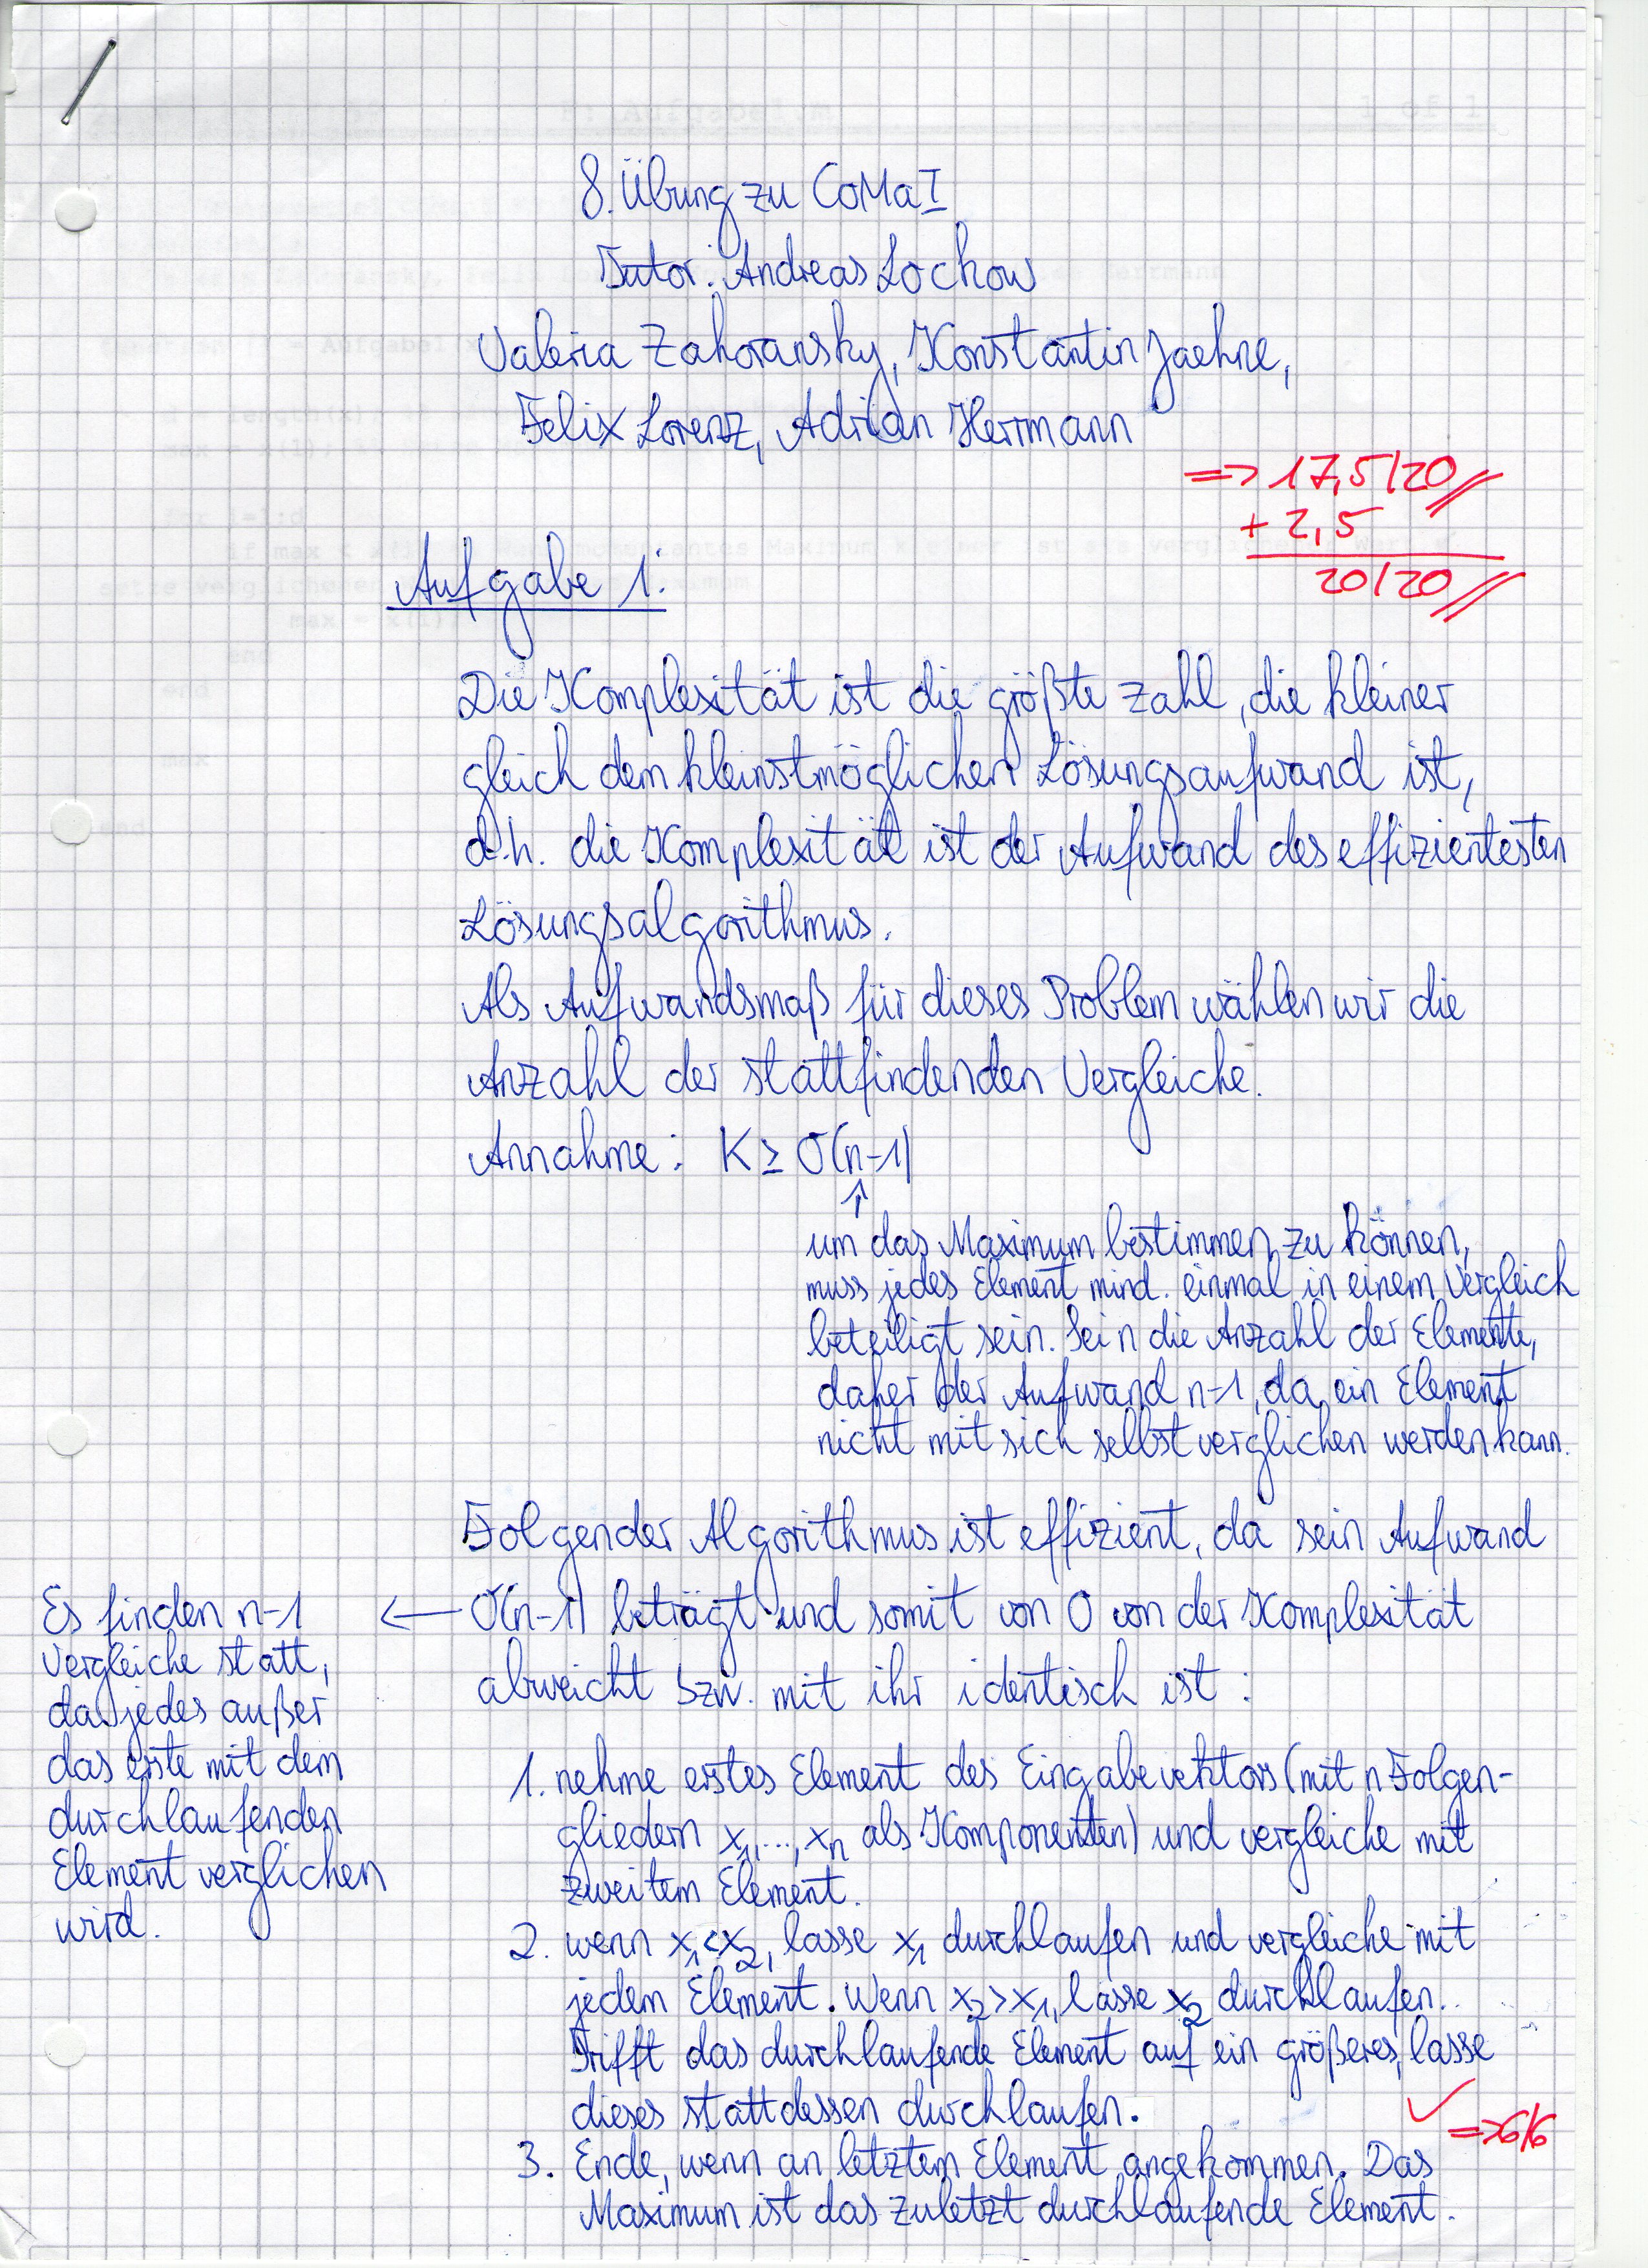 8. Übung zu CoMa I
Tutor: Andreas Lockow
Valeria Zahoransky, Konstantin Jaehne,
Felix Lorenz, Adrian Herrmann
=> 17,5/20
+ 2,5
20/20
Aufgabe 1:
Die Komplexität ist die größte Zahl, die kleiner
gleich dem kleinstmöglichen Lösungsaufwand ist,
d.h. die Komplexität ist der Aufwand des effizientesten
Lösungsalgorithmus.
Als Aufwandsmaß für dieses Problem wählen wir die
Anzahl der stattfindenden Vergleiche.
Annahme: K ≥ O(n-1)
↑
um das Maximum bestimmen zu können,
muss jedes Element mind. einmal in einem Vergleich
beteiligt sein. Sei n die Anzahl der Elemente,
daher der Aufwand n-1, da ein Element
nicht mit sich selbst verglichen werden kann.
Folgender Algorithmus ist effizient, da sein Aufwand
O(n-1) beträgt und somit von 0 von der Komplexität
abweicht bzw. mit ihr identisch ist:
Es finden n-1 ←
Vergleiche statt,
da jedes außer
das erste mit dem
durchlaufenden
Element verglichen
wird.
1. nehme erstes Element des Eingabevektors (mit n Folgen-
gliedern x₁,...,xₙ als Komponenten) und vergleiche mit
zweitem Element.
2. wenn x₁<x₂, lasse x₁ durchlaufen und vergleiche mit
jedem Element. Wenn x₂>x₁, lasse x₂ durchlaufen.
Trifft das durchlaufende Element auf ein größeres, lasse
dieses stattdessen durchlaufen.
✓ => 6/6
3. Ende, wenn an letztem Element angekommen. Das
Maximum ist das zuletzt durchlaufende Element.